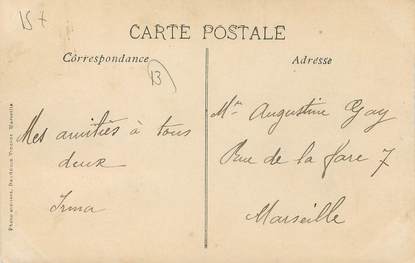 15+
CARTE POSTALE
Correspondance
13
Adresse
Mes amitiés à tous
deux
Irma
Mme Augustine Gay
Rue de la gare 7
Marseille
Marseille